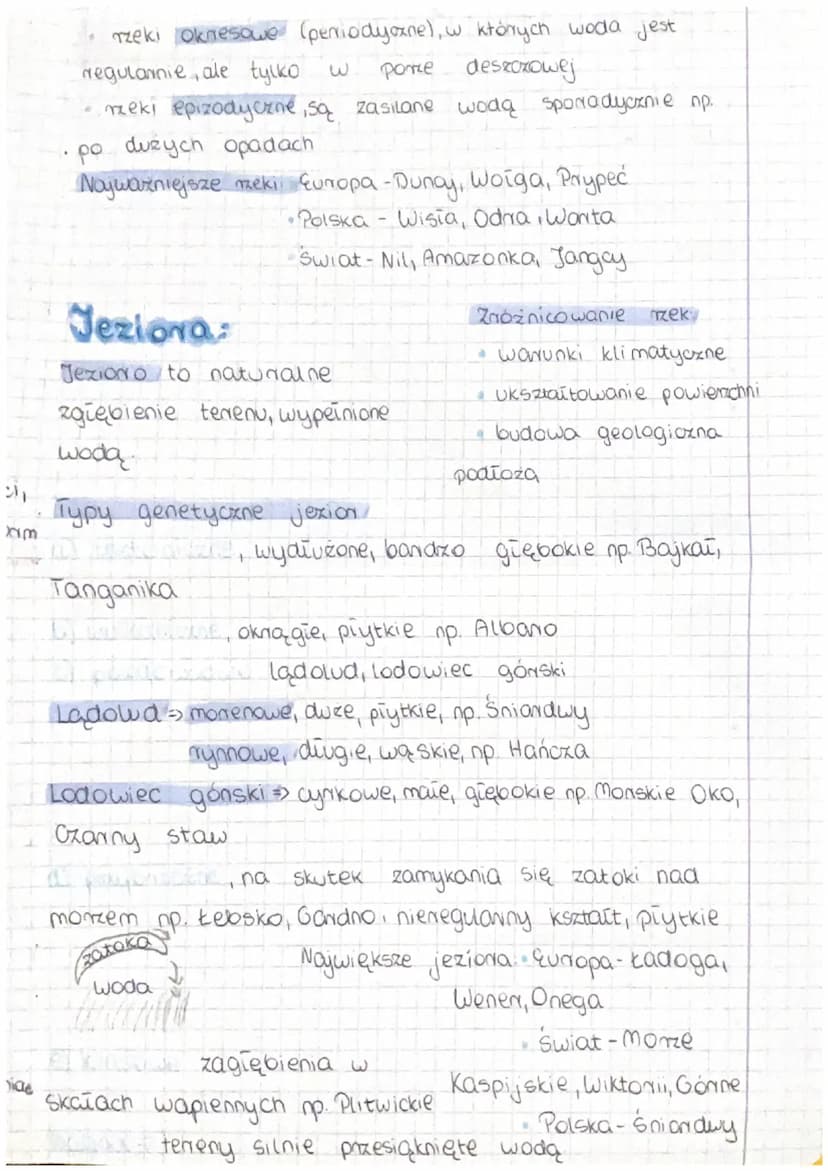 • rzeki okresowe (periodyczne), w których woda jest
regularnie, ale tylko w porze deszczowej
• rzeki epizodyczne, są zasilane wodą sporadycznie np.
po dużych opadach
Najważniejsze rzeki: Europa - Dunaj, Wołga, Prypeć
• Polska - Wisła, Odra, Warta
• Świat - Nil, Amazonka, Jangcy
Jeziora:
Jezioro to naturalne
zgłębienie terenu, wypełnione
wodą.
Zróżnicowanie rzek:
• warunki klimatyczne
• ukształtowanie powierzchni
• budowa geologiczna
podłoża
Typy genetyczne jezior
, wydłużone, bardzo głębokie np. Bajkał,
Tanganika
, okrągłe, płytkie np. Albano
lądolud, lodowiec górski
Lądolud => morenowe, duże, płytkie, np. Śniardwy
rynnowe, długie, wąskie, np. Hańcza
Lodowiec górski => cyrkowe, małe, głębokie np. Morskie Oko,
Czarny staw
, na skutek zamykania się zatoki nad
morzem np. Łebsko, Gardno, nieregularny kształt, płytkie
zatoka
woda
Największe jeziora: • Europa - Ładoga,
Wener, Onega
• Świat - Morze
Kaspijskie, Wiktorii, Górne
• Polska - Śniardwy
zagłębienia w
skałach wapiennych np. Plitwickie
- tereny silnie przesiąknięte wodą